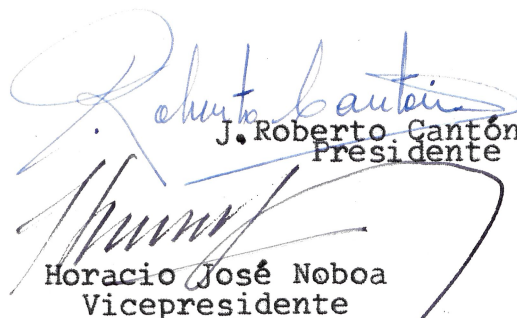 J. Roberto Cantón
J. Roberto Cantón
Presidente
Horacio José Noboa
Vicepresidente